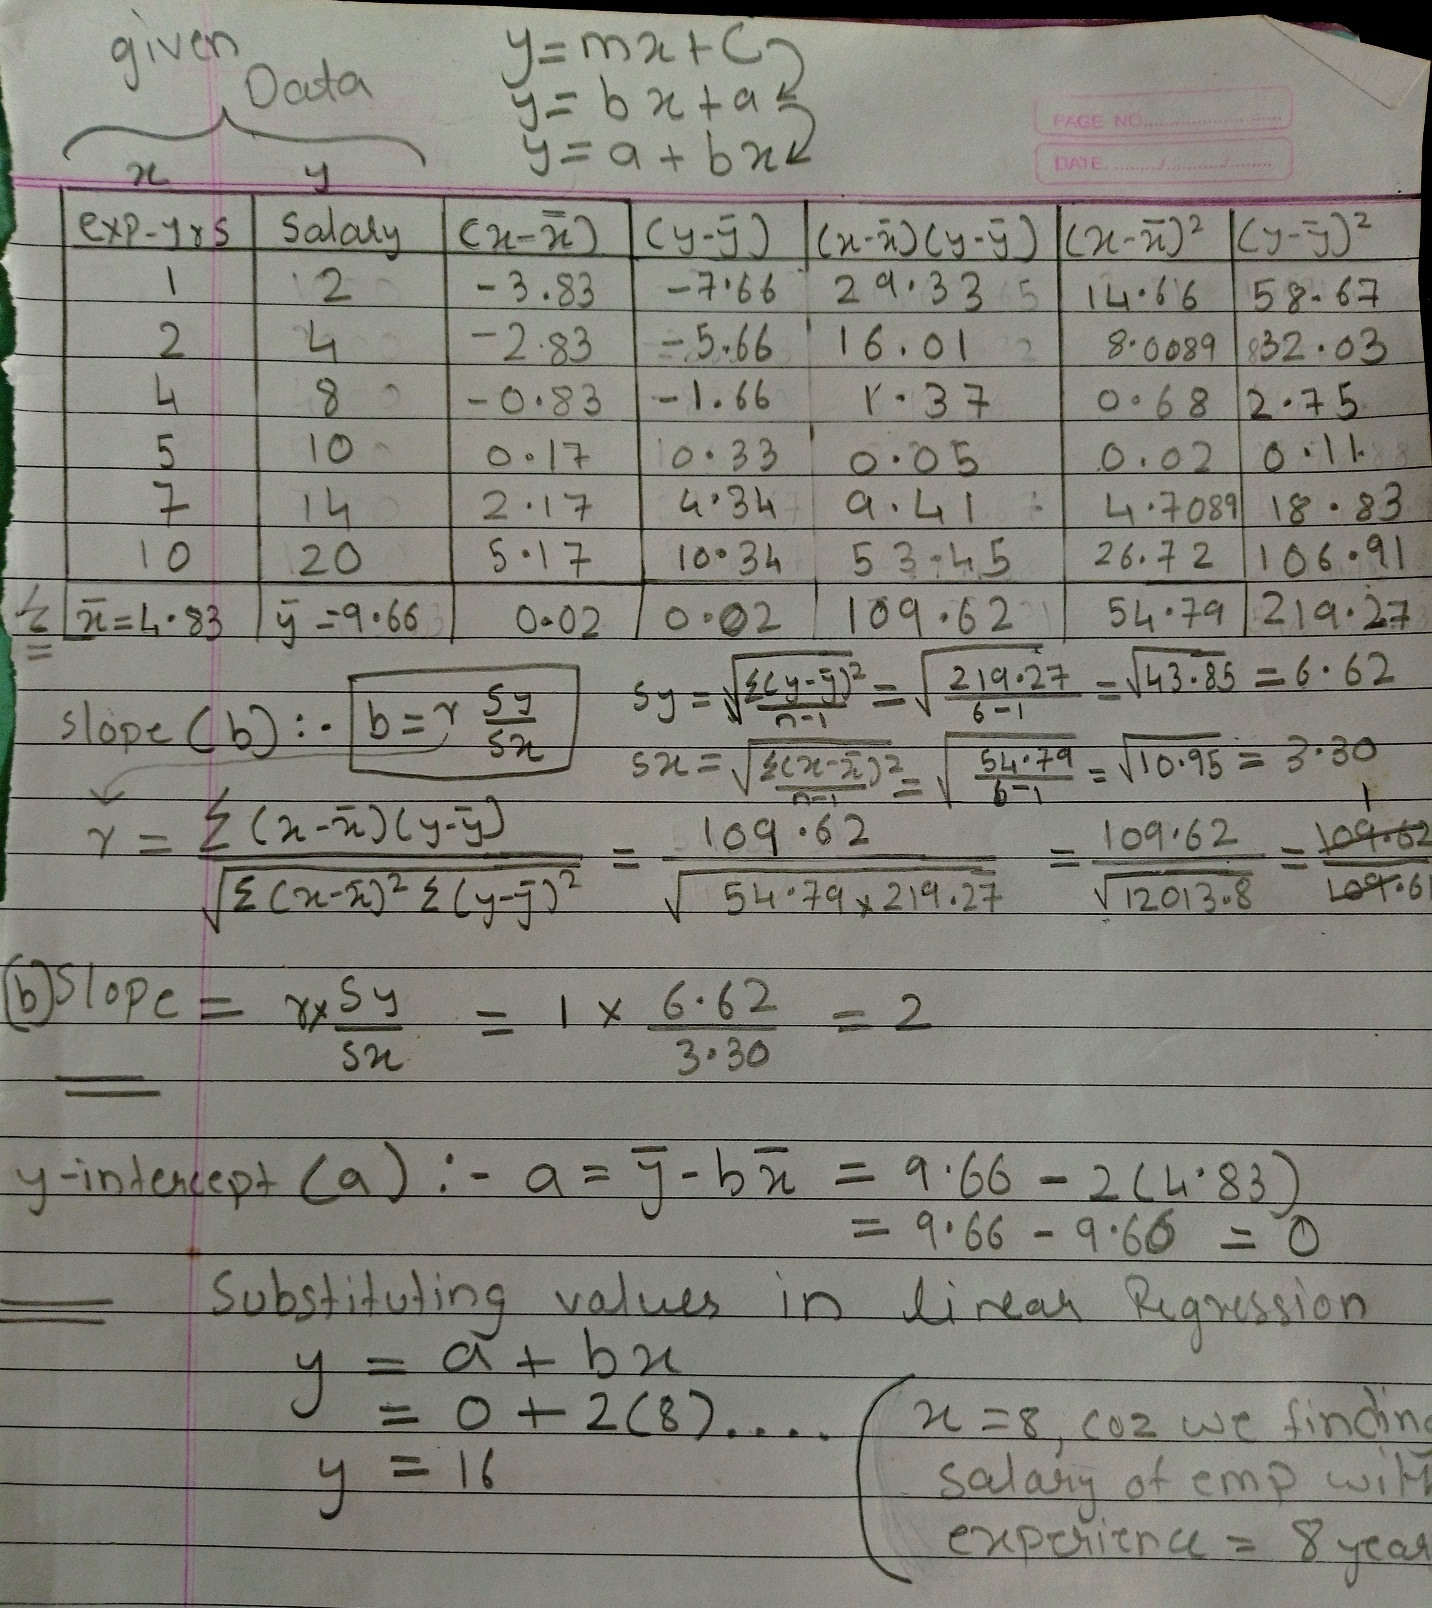 given
Data
y=mx+C
y=bx+a
y=a+bx
PAGE NO.
DATE
x y
exp-yrs Salary (x-x̄) (y-ȳ) (x-x̄)(y-ȳ) (x-x̄)² (y-ȳ)²
1 2 -3.83 -7.66 29.33 14.66 58.67
2 4 -2.83 -5.66 16.01 8.0089 32.03
4 8 -0.83 -1.66 1.37 0.68 2.75
5 10 0.17 0.33 0.05 0.02 0.11
7 14 2.17 4.34 9.41 4.7089 18.83
10 20 5.17 10.34 53.45 26.72 106.91
Σ x̄=4.83 ȳ=9.66 0.02 0.02 109.62 54.79 219.27
Sy = √Σ(y-ȳ)²/n-1 = √219.27/6-1 = √43.85 = 6.62
slope (b) :- b=r Sy/Sx
Sx = √Σ(x-x̄)²/n-1 = √54.79/6-1 = √10.95 = 3.30
r = Σ(x-x̄)(y-ȳ)/√Σ(x-x̄)² Σ(y-ȳ)² = 109.62/√54.79x219.27 = 109.62/√12013.8 = 109.62/109.61 1
(b) Slope = r x Sy/Sx = 1 x 6.62/3.30 = 2
y-intercept (a) :- a = ȳ - bx̄ = 9.66 - 2(4.83)
= 9.66 - 9.66 = 0
Substituting values in linear Regression
y = a + bx
= 0 + 2(8)....
y = 16
(x=8, coz we finding
salary of emp with
experience = 8 year